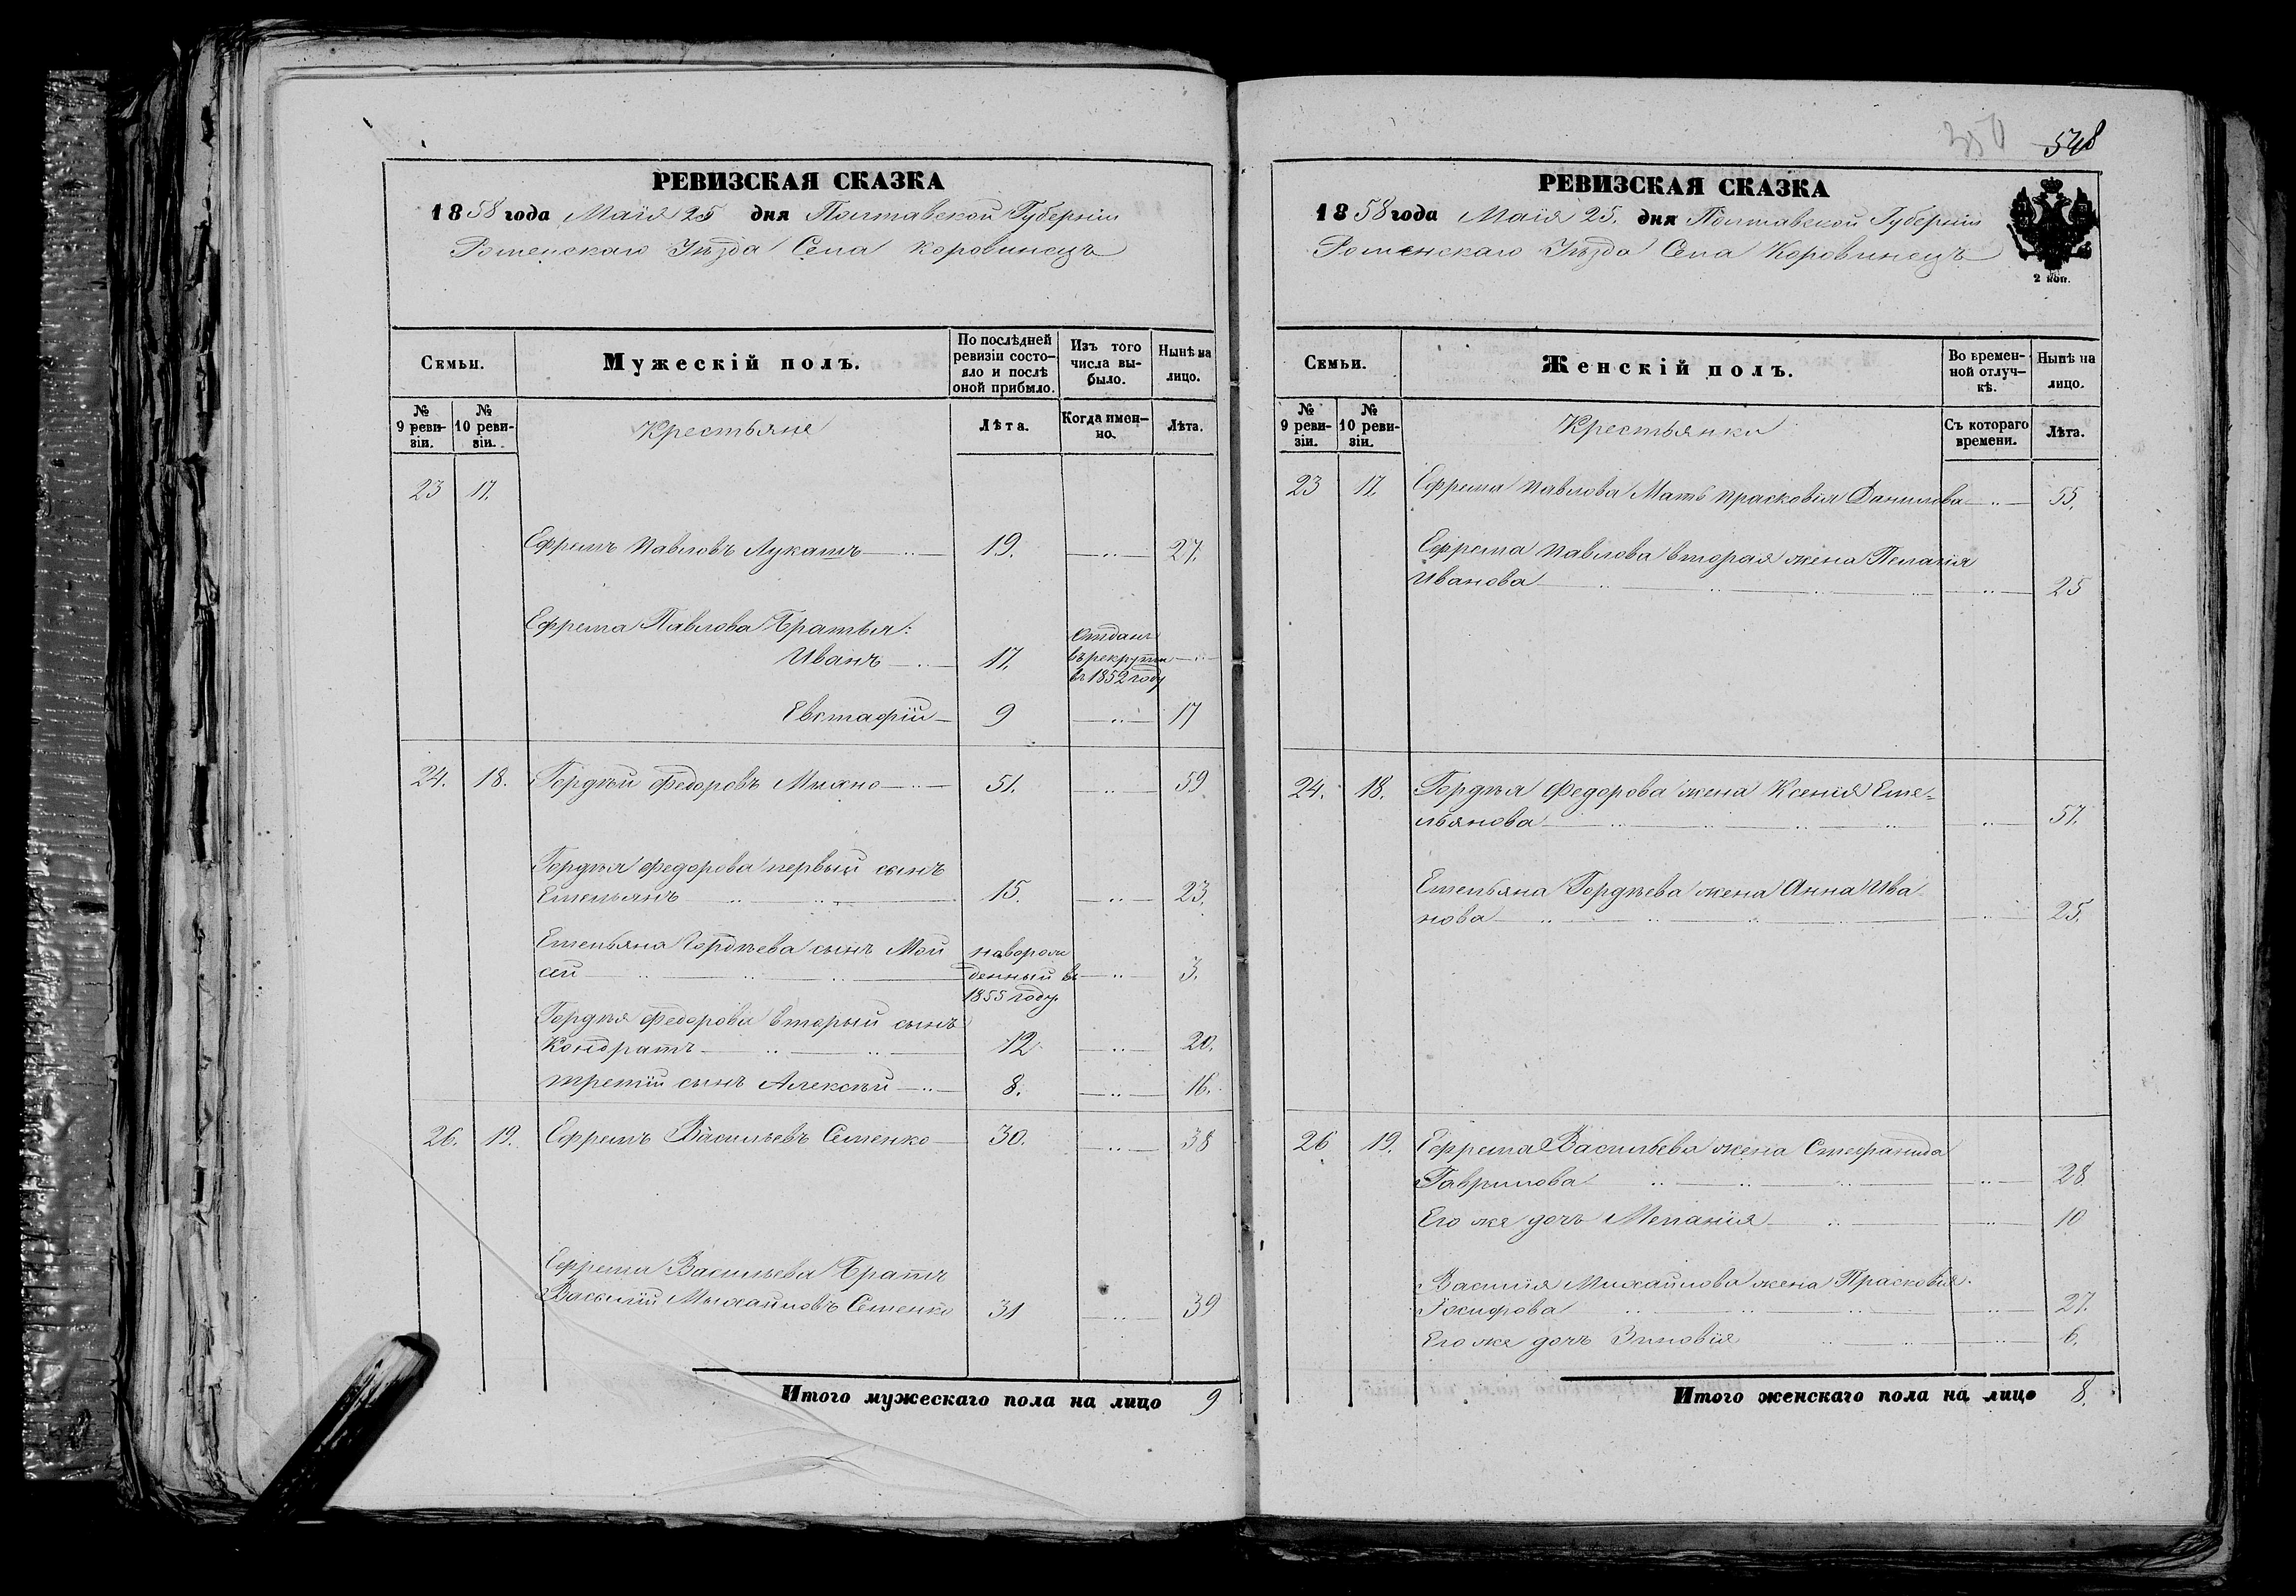 РЕВИЗСКАЯ СКАЗКА
1858 года Маія 25 дня Полтавской Губерніи
Роменскаго Уѣзда Села Коровинецъ
Семьи.
Мужескій полъ.
По послѣдней ревизіи состо-
яло и послѣ оной прибыло.
Изъ того числа вы-
было.
Нынѣ на лицо.
№ 9 реви-
зіи.
№ 10 реви-
зіи.
Крестьяне
Лѣта.
Когда имен-
но.
Лѣта.
23 17.
Ефремъ Павловъ Лукашъ 19. 27.
Ефрема Павлова Братья:
Иванъ 17. Отданъ
въ рекруты
въ 1852 году
Евстафій 9 17
24. 18. Гордѣй Федоровъ Михно 51. 59
Гордѣя Федорова первый сынъ
Емельянъ 15. 23.
Емельяна Гордѣева сынъ Мой
сей новорож
денный въ
1855 году. 3.
Гордѣя Федорова вторый сынъ
Кондратъ 12. 20.
третій сынъ Алексѣй 8. 16.
26. 19. Ефремъ Васильевъ Семенко 30. 38
Ефрема Васильева Братъ
Василій Михайловъ Семенко 31 39
Итого мужескаго пола на лицо 9
350 548
РЕВИЗСКАЯ СКАЗКА
1858 года Маія 25. дня Полтавской Губерніи
Роменскаго Уѣзда Села Коровинецъ
2 коп.
Семьи.
Женскій полъ.
Во времен-
ной отлуч-
кѣ.
Нынѣ на лицо.
№ 9 реви-
зіи.
№ 10 реви-
зіи.
Крестьянки
Съ котораго времени.
Лѣта.
23 17. Ефрема Павлова Мать Прасковія Данилова 55.
Ефрема Павлова вторая жена Пелагія
Иванова 25
24. 18. Гордѣя Федорова жена Ксенія Еме-
льянова 57.
Емельяна Гордѣева жена Анна Ива
нова 25.
26 19. Ефрема Васильева жена Стефанида
Гаврилова 28
Его же дочь Меланія 10
Василія Михайлова жена Прасковія
27.
Его же дочь Зиновія 6.
Итого женскаго пола на лицо 8.